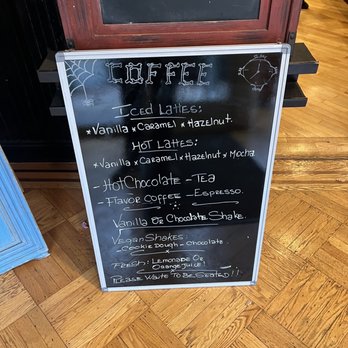 COFFEE
Iced Lattes:
*Vanilla *Caramel *Hazelnut.
Hot Lattes:
*Vanilla *Caramel *Hazelnut *Mocha
-Hot Chocolate -Tea
-Flavor Coffee -Espresso.
Vanilla or Chocolate Shake.
Vegan Shakes:
-Cookie Dough -Chocolate.
Fresh: Lemonade or
Orange Juice!
Please Wait to be Seated!!